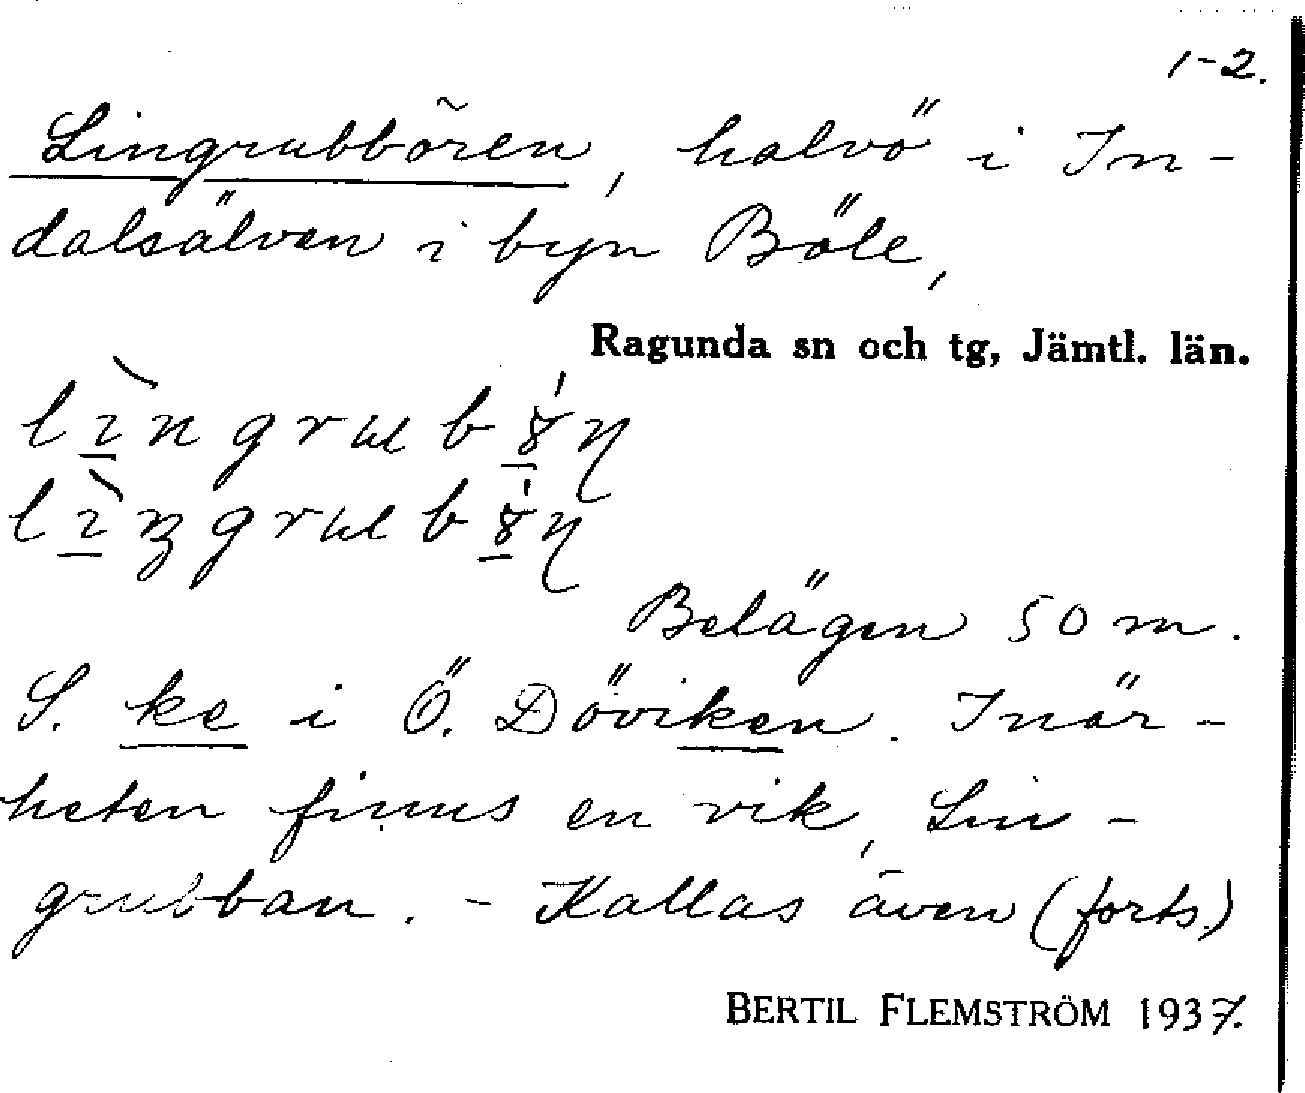 1-2.
Lingrubbören, halvö i In-
dalsälven i byn Böle,
Ragunda sn och tg, Jämtl. län.
Belägen 50 m.
S. ke i Ö. Döviken. I när-
heten finns en vik, Lin-
grubban. - Kallas även (forts.)
BERTIL FLEMSTRÖM 1937.